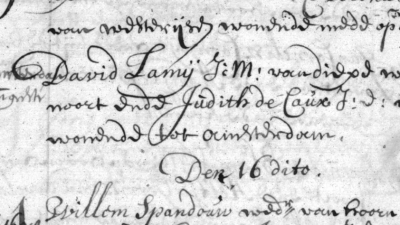 van westerijck wonende mede op
David Lamij J: M: van diepe w
noort ende Judith de Caux J: d:
wonende tot amsterdam.
Den 16 dito.
Willem Spandouw wedr van hoorn